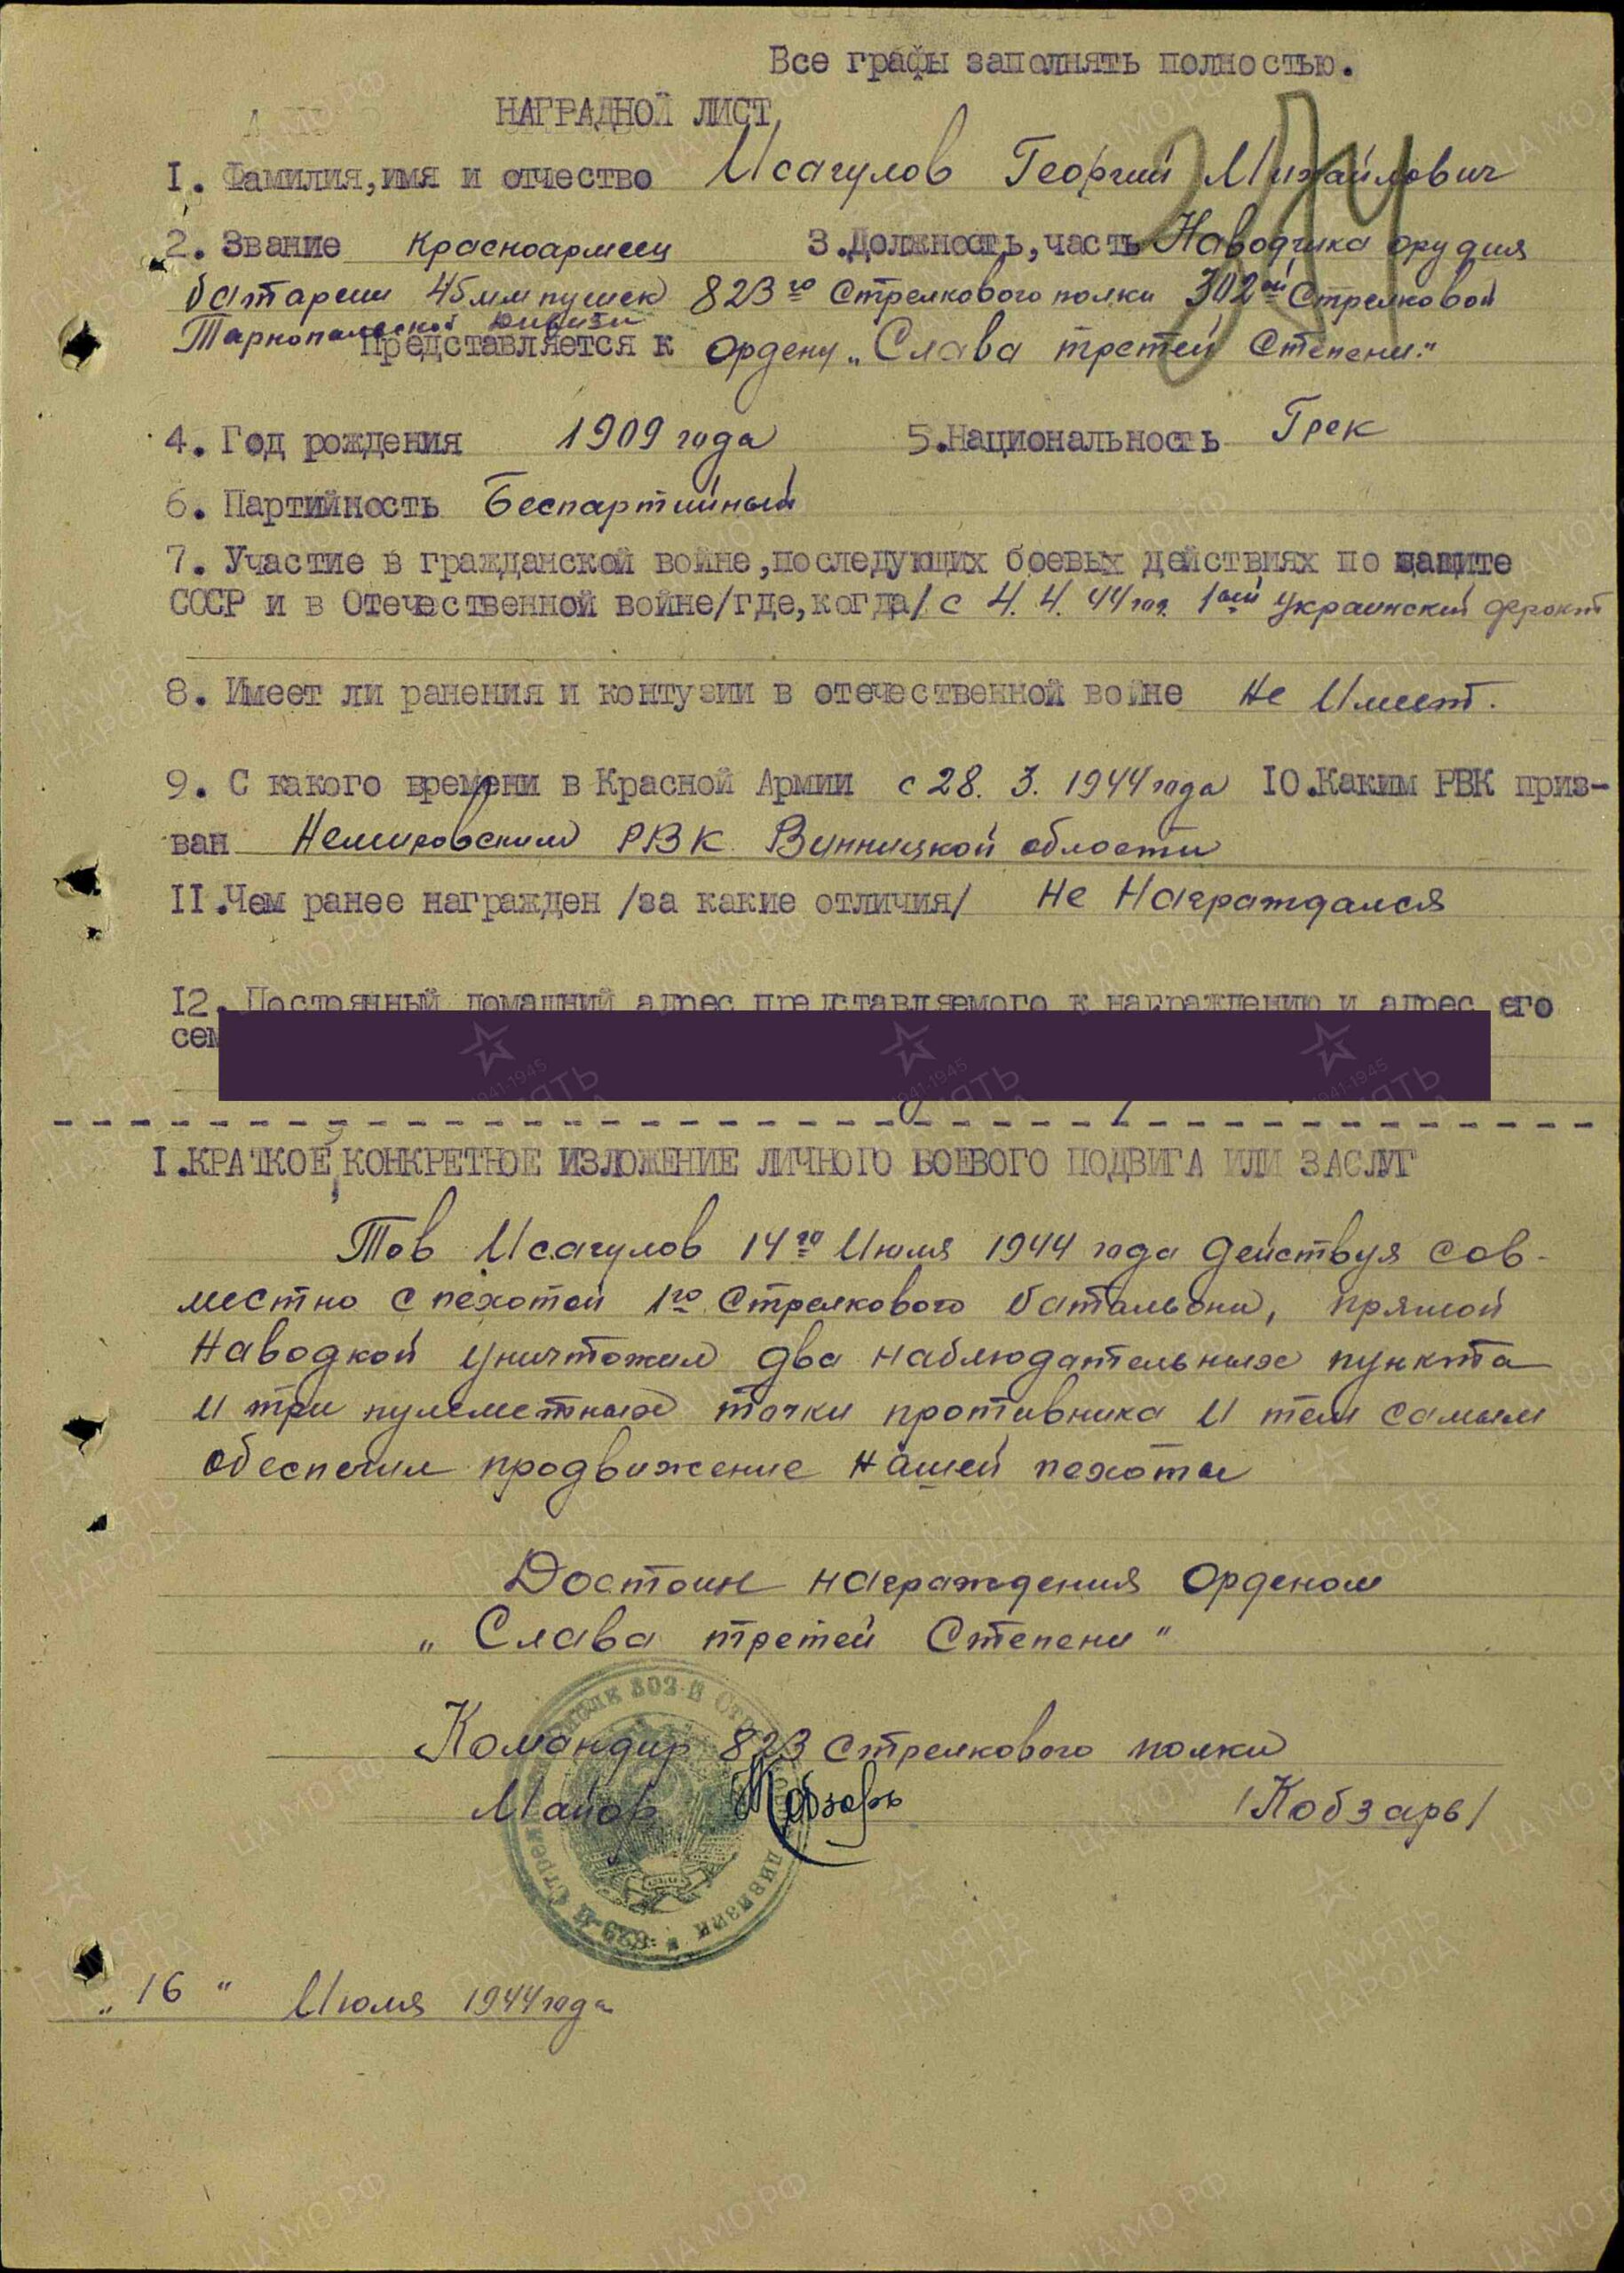 Все графы заполнять полностью.
НАГРАДНОЙ ЛИСТ
1. Фамилия, имя и отчество Исагулов Георгий Михайлович
2. Звание Красноармеец 3. Должность, часть Наводчика орудия
батареи 45 мм пушек 823го Стрелкового полка 302ой Стрелковой
Тарнопальской дивизи
Представляется к ордену „Слава третей Степени."
4. Год рождения 1909 года 5. Национальность Грек
6. Партийность Беспартийный
7. Участие в гражданской войне, последующих боевых действиях по защите
СССР и в Отечественной войне /где, когда/ с 4. 4. 44 год. 1ый Украинский фронт
8. Имеет ли ранения и контузии в отечественной войне Не Имеет.
9. С какого времени в Красной Армии с 28. 3. 1944 года 10. Каким РВК приз-
ван Немировским РВК Винницкой области
11. Чем ранее награжден /за какие отличия/ Не Награждался
12. Постоянный домашний адрес представляемого к награждению и адрес его
сем
1. КРАТКОЕ, КОНКРЕТНОЕ ИЗЛОЖЕНИЕ ЛИЧНОГО БОЕВОГО ПОДВИГА ИЛИ ЗАСЛУГ
Тов Исагулов 14го Июля 1944 года действуя сов-
местно с пехотой 1го Стрелкового батальона, прямой
Наводкой уничтожил два наблюдательных пункта
и три пулеметных точки противника и тем самым
обеспечил продвижение нашей пехоты
Достоин награждения Орденом
„Слава третей Степени"
Командир 823 Стрелкового полка
Майор Кобзарь /Кобзарь/
„16" Июля 1944 года